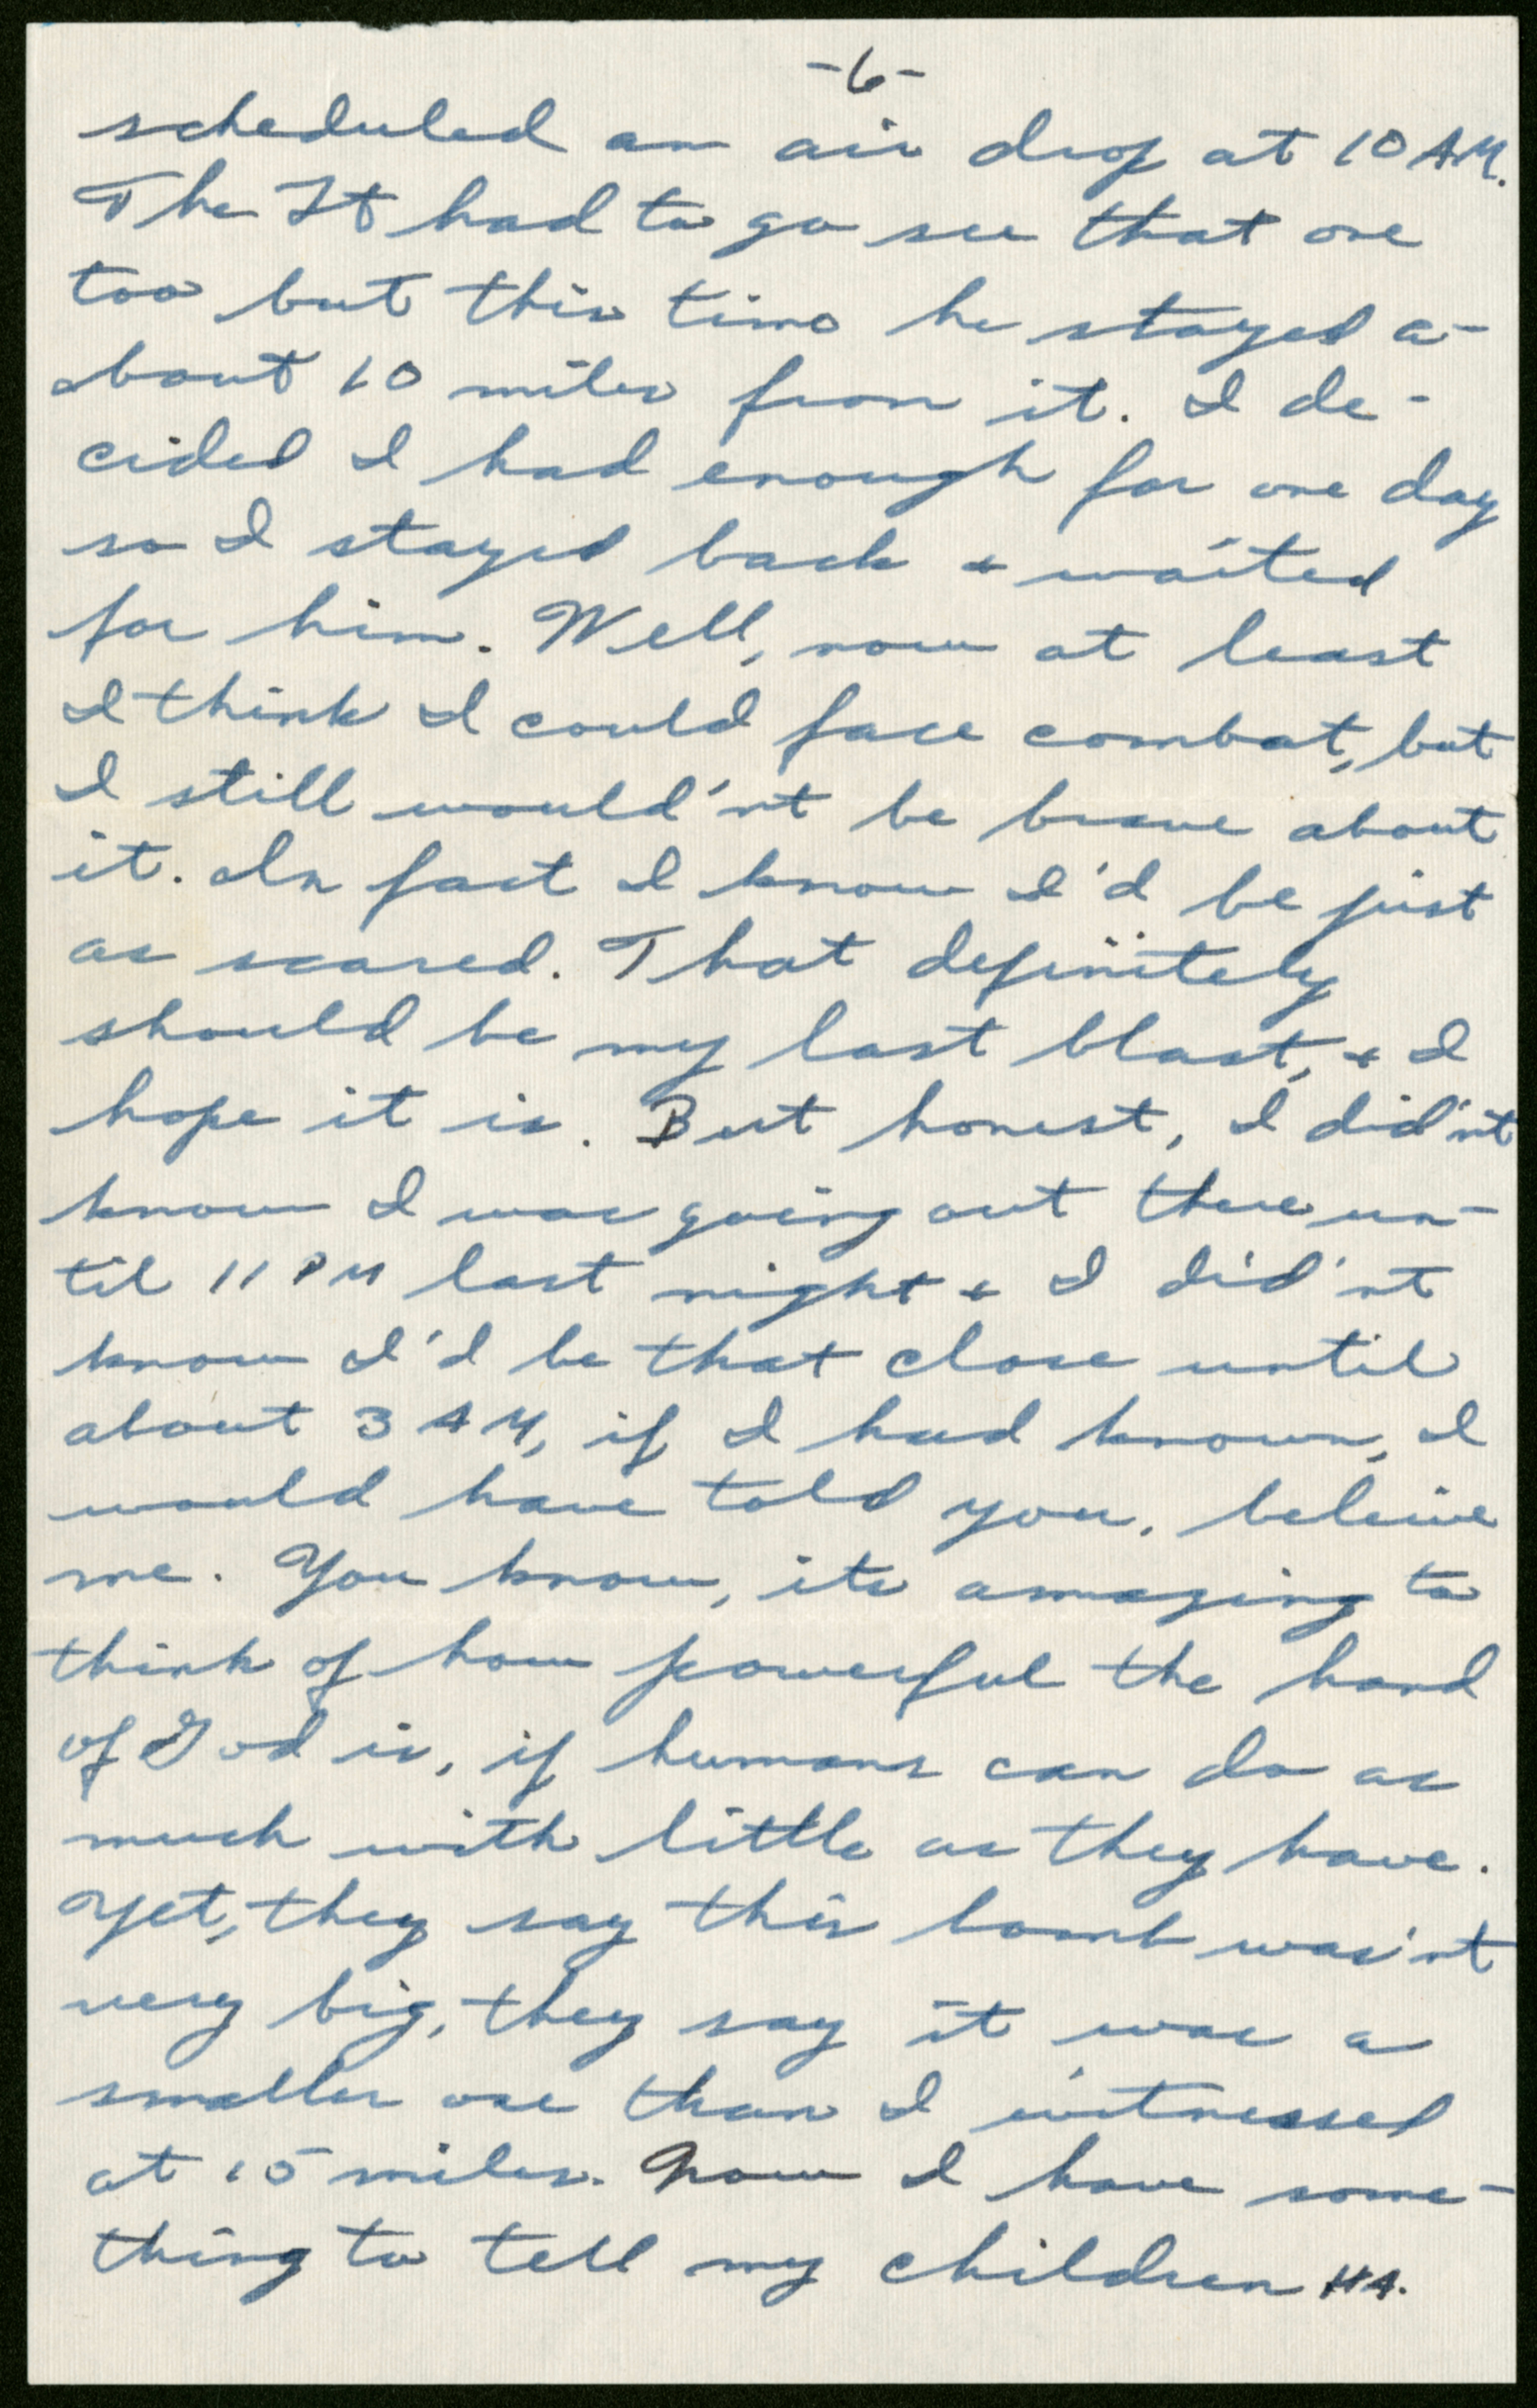 -6-
scheduled an air drop at 10 AM.
The Lt had to go see that one
too but this time he stayed a-
bout 10 miles from it. I de-
cided I had enough for one day
so I stayed back + waited
for him. Well, now at least
I think I could face combat, but
I still would'nt be brave about
it. In fact I know I'd be just
as scared. That definitely
should be my last blast, + I
hope it is. But honest, I did'nt
know I was going out there un-
til 11 PM last night + I did'nt
know I'd be that close until
about 3 AM, if I had known, I
would have told you, beleive
me. You know, its amazing to
think of how powerful the hand
of God is, if humans can do as
much with little as they have.
Yet, they say this bomb was'nt
very big, they say it was a
smaller one than I witnessed
at 15 miles. Now I have some-
thing to tell my children HA.